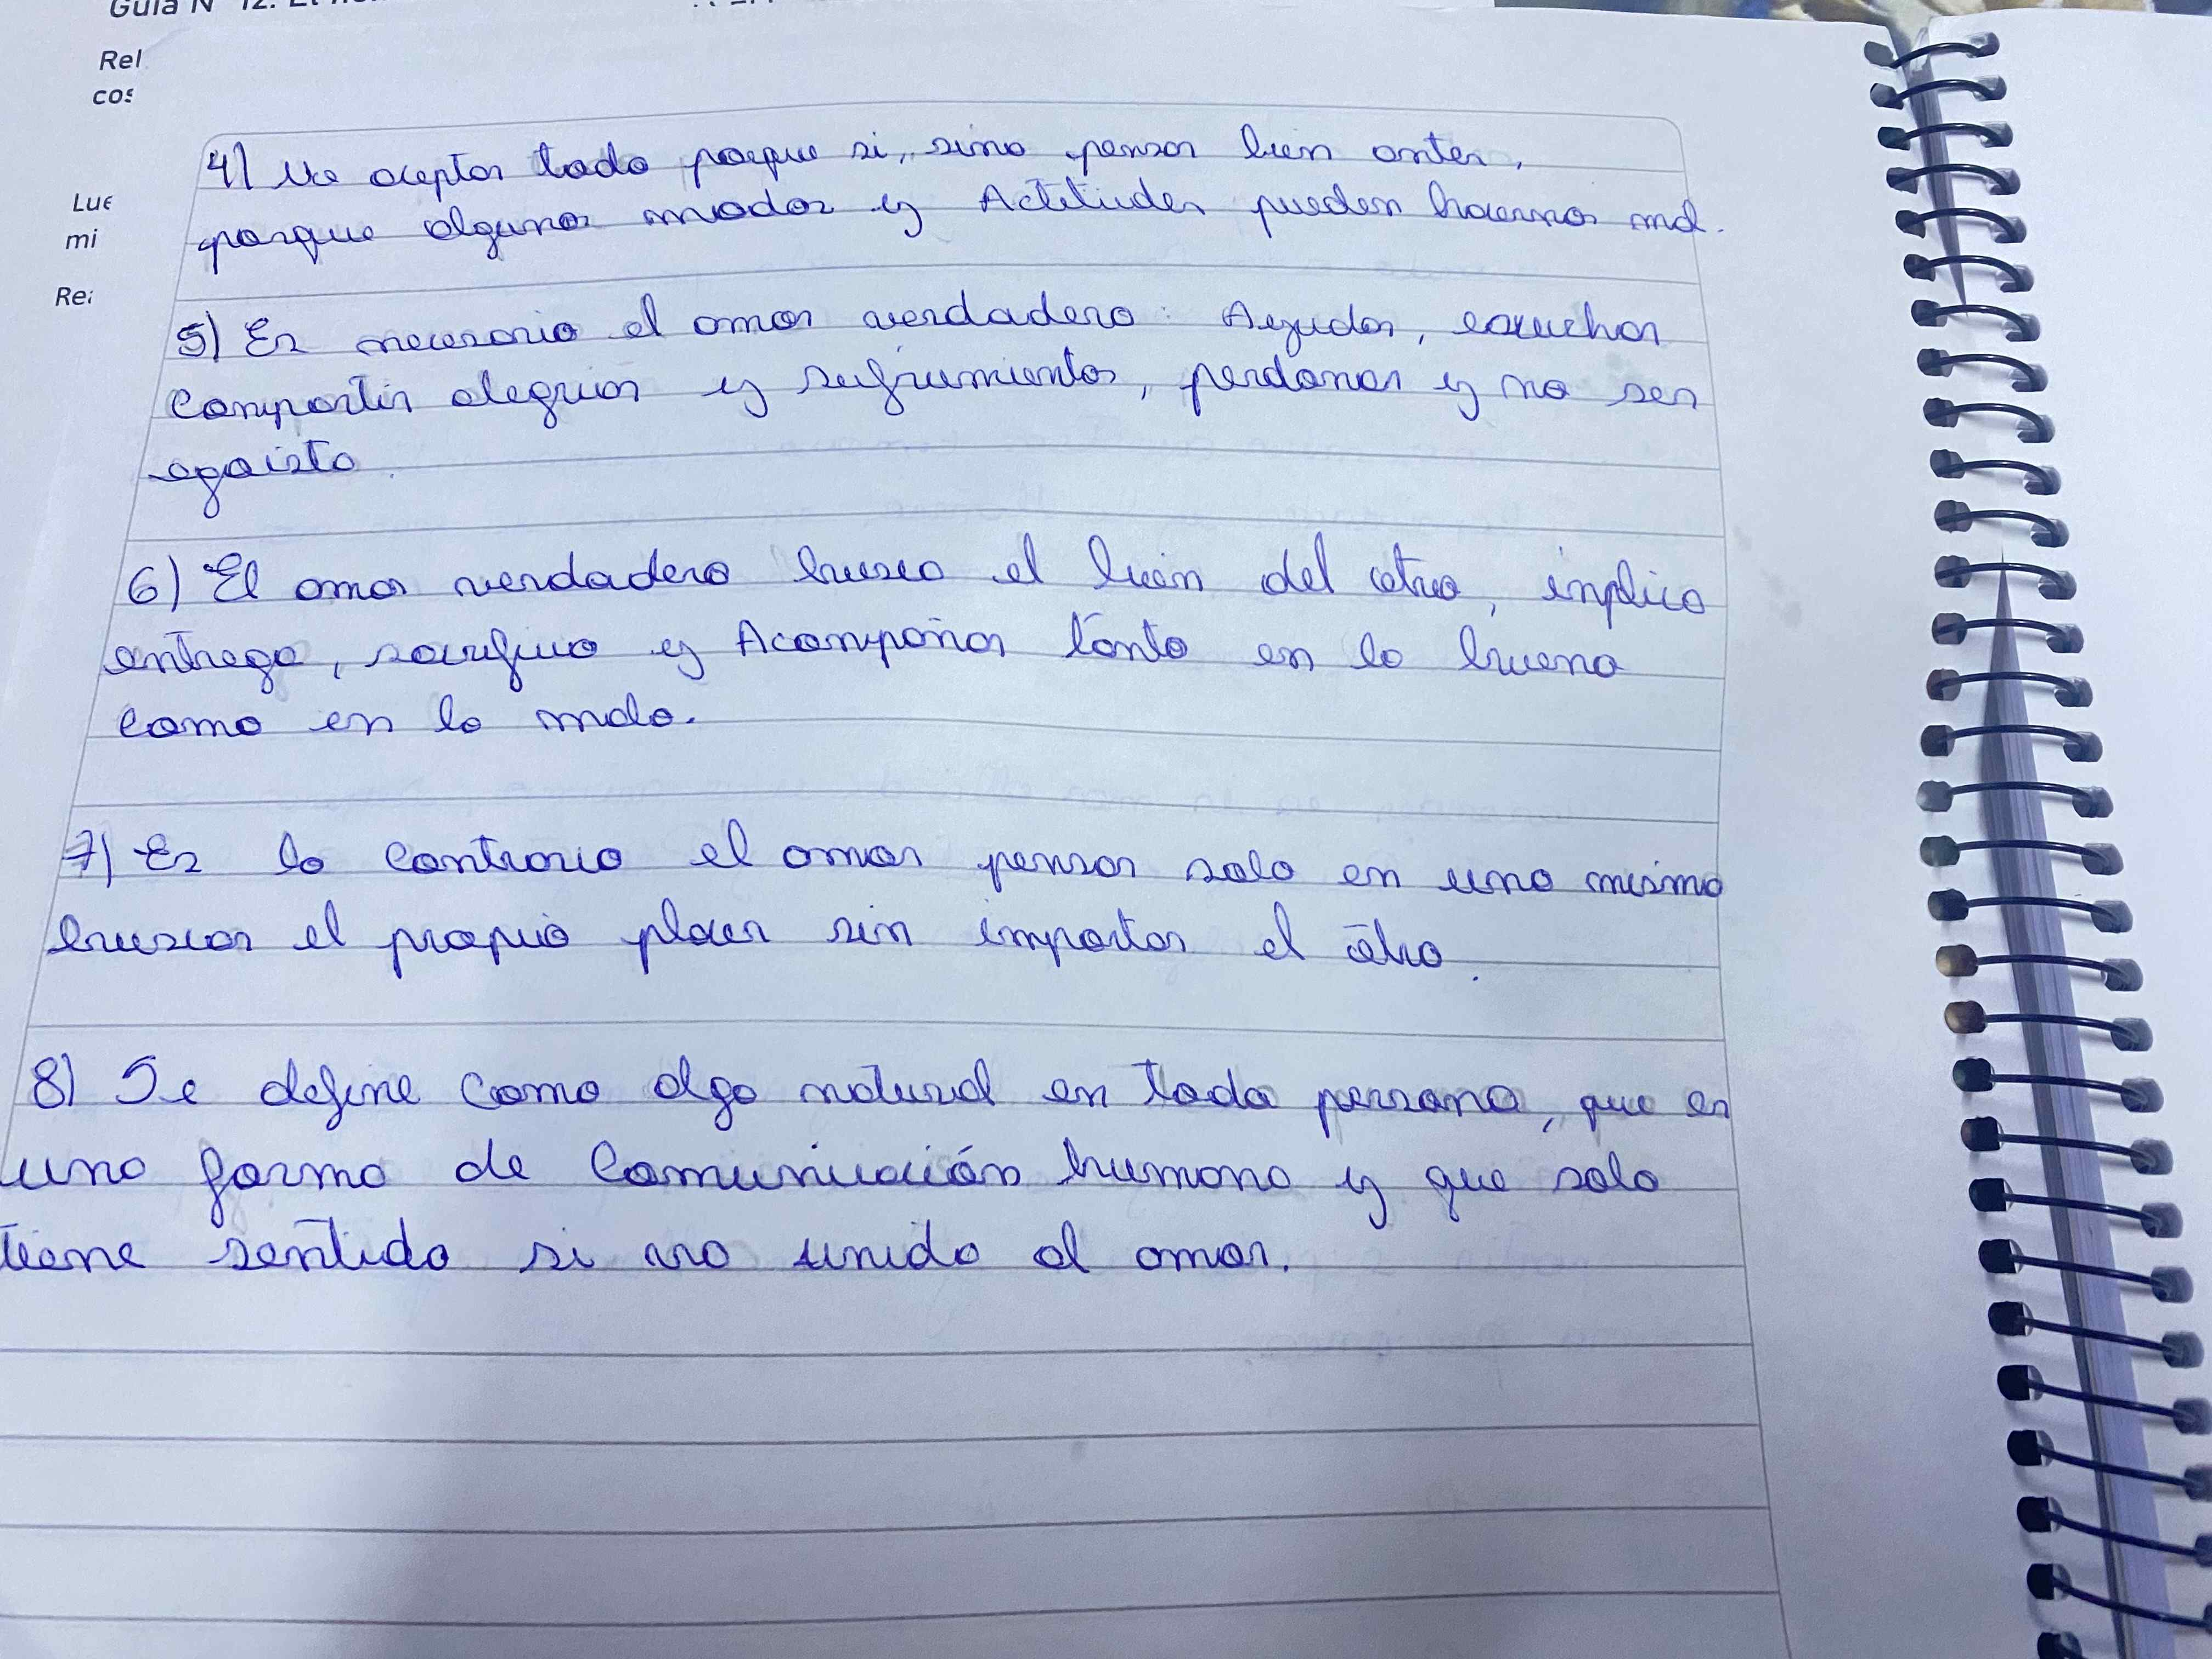 Guía N° 12: El
Rel
cos
Lue
mi
Rea
4) No aceptar todo porque si, sino pensar bien antes,
porque algunos modos y Actitudes pueden hacernos mal.
5) Es necesario el amor verdadero: Ayudar, escuchar
Compartir alegrias y sufrimientos, perdonar y no ser
egoista.
6) El amor verdadero busca el bien del otro, implica
entrega, sacrificio y Acompañar tanto en lo bueno
como en lo malo.
7) Es lo contrario el amor pensar solo en uno mismo
buscar el propio placer sin importar el otro.
8) Se define como algo natural en toda persona, que es
una forma de Comunicación humana y que solo
tiene sentido si va unido al amor.